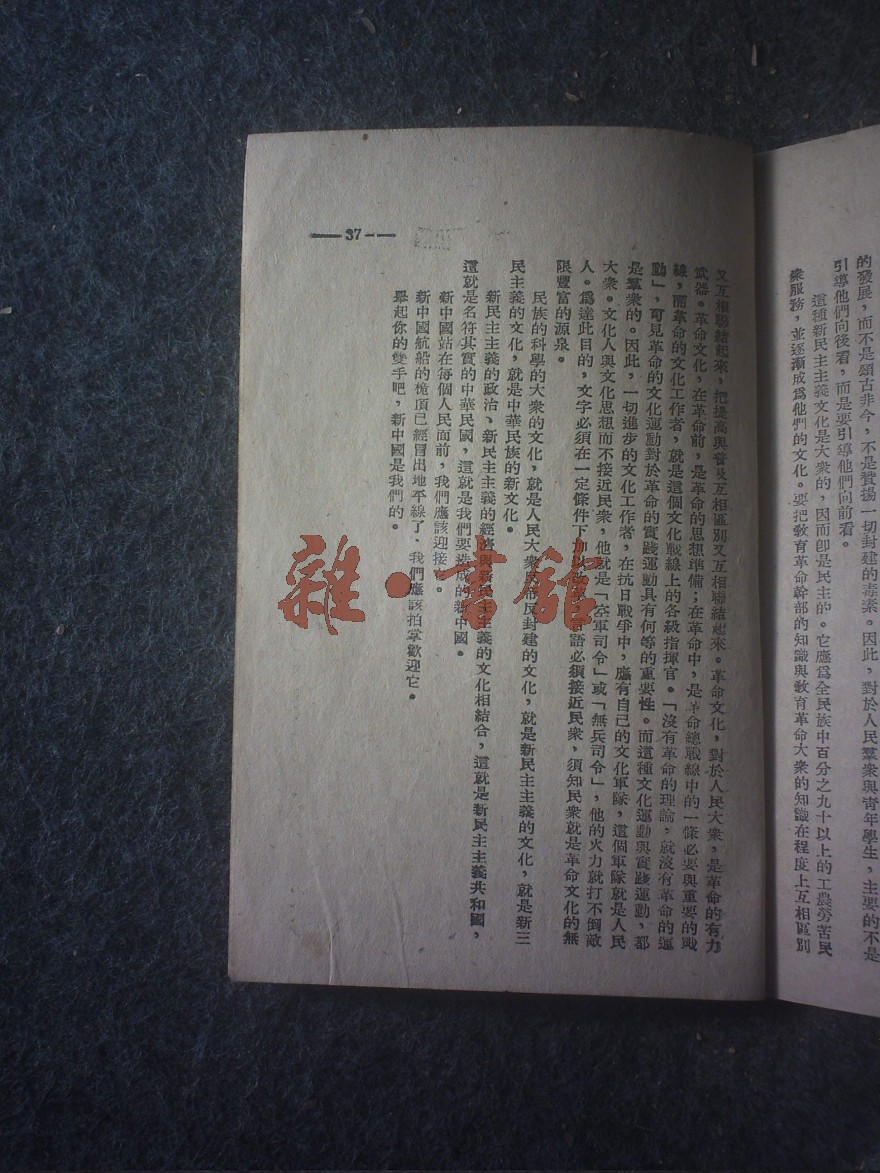 的發展，而不是頌古非今，不是贊揚一切封建的毒素。因此，對於人民羣衆與青年學生，主要的不是
引導他們向後看，而是要引導他們向前看。
這種新民主主義文化是大衆的，因而卽是民主的。它應爲全民族中百分之九十以上的工農勞苦民
衆服務，並逐漸成爲他們的文化。要把敎育革命幹部的知識與敎育革命大衆的知識在程度上互相區別
又互相聯結起來，把提高與普及互相區別又互相聯結起來。革命文化，對於人民大衆，是革命的有力
武器。革命文化，在革命前，是革命的思想準備；在革命中，是革命總戰線中的一條必要與重要的戰
線，而革命的文化工作者，就是這個文化戰線上的各級指揮官。「沒有革命的理論，就沒有革命的運
動」，可見革命的文化運動對於革命的實踐運動具有何等的重要性。而這種文化運動與實踐運動，都
是羣衆的。因此，一切進步的文化工作者，在抗日戰爭中，應有自己的文化軍隊，這個軍隊就是人民
大衆。文化人與文化思想而不接近民衆，他就是「空軍司令」或「無兵司令」，他的火力就打不倒敵
人。爲達此目的，文字必須在一定條件下加以改革，言語必須接近民衆，須知民衆就是革命文化的無
限豐富的源泉。
民族的科學的大衆的文化，就是人民大衆反帝反封建的文化，就是新民主主義的文化，就是新三
民主義的文化，就是中華民族的新文化。
新民主主義的政治、新民主主義的經濟與新民主主義的文化相結合，這就是新民主主義共和國，
這就是名符其實的中華民國，這就是我們要造成的新中國。
新中國站在每個人民面前，我們應該迎接它。
新中國航船的桅頂已經冒出地平線了，我們應該拍掌歡迎它。
舉起你的雙手吧，新中國是我們的。
— 37 —
雜·書館